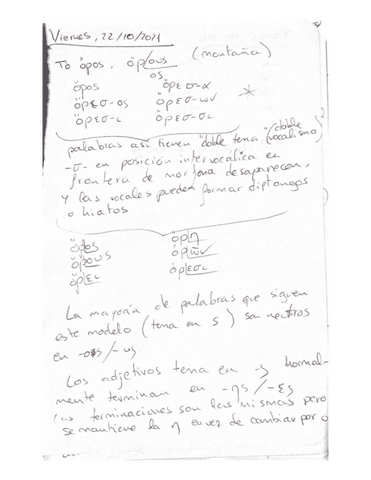 Viernes, 22/10/2021
Τὸ ὄρος, ὄρ/ους (montaña)
ος
ὄρος ὄρεσ-α
ὄρεσ-ος ὀρεσ-ων *
ὄρεσ-ι ὄρεσ-σι
palabras así tienen "doble tema" (doble vocalismo)
-σ- en posición intervocálica en
frontera de morfema desaparecen,
y las vocales pueden formar diptongos
o hiatos
ὄρος ὄρη
ὄρους ὀρῶν
ὄρει ὄρεσι
La mayoría de palabras que siguen
este modelo (tema en s) son neutros
en -os/-us
Los adjetivos tema en -s normal-
mente terminan en -ης/-ες
las terminaciones son las mismas pero
se mantiene la η en vez de cambiar por o